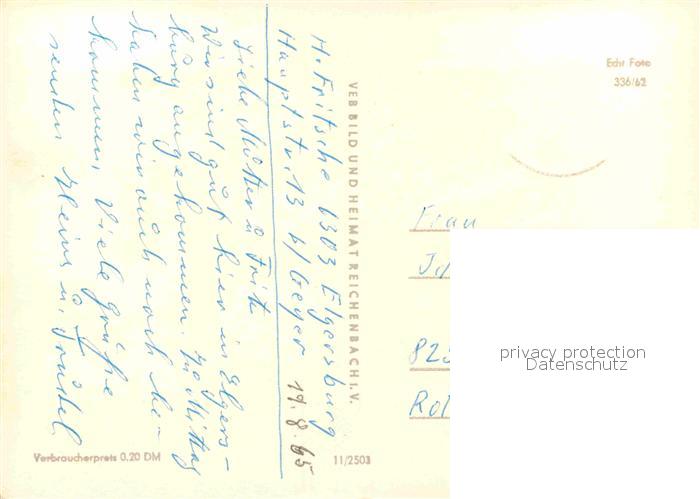 H. Fritsche 6303 Elgersburg
Hauptstr. 13 b/ Geyer 19.8.65
Liebe Mutter u. Fritz
Wir sind gut hier in Elgers-
burg angekommen. Zu Mittag
haben wir auch noch be-
kommen. Viele Grüße
senden Heinz u. Trudel.
VEB BILD UND HEIMAT REICHENBACH I. V.
Echt Foto
336/62
Frau
825
Rot
privacy protection
Datenschutz
Verbraucherpreis 0,20 DM
11/2503